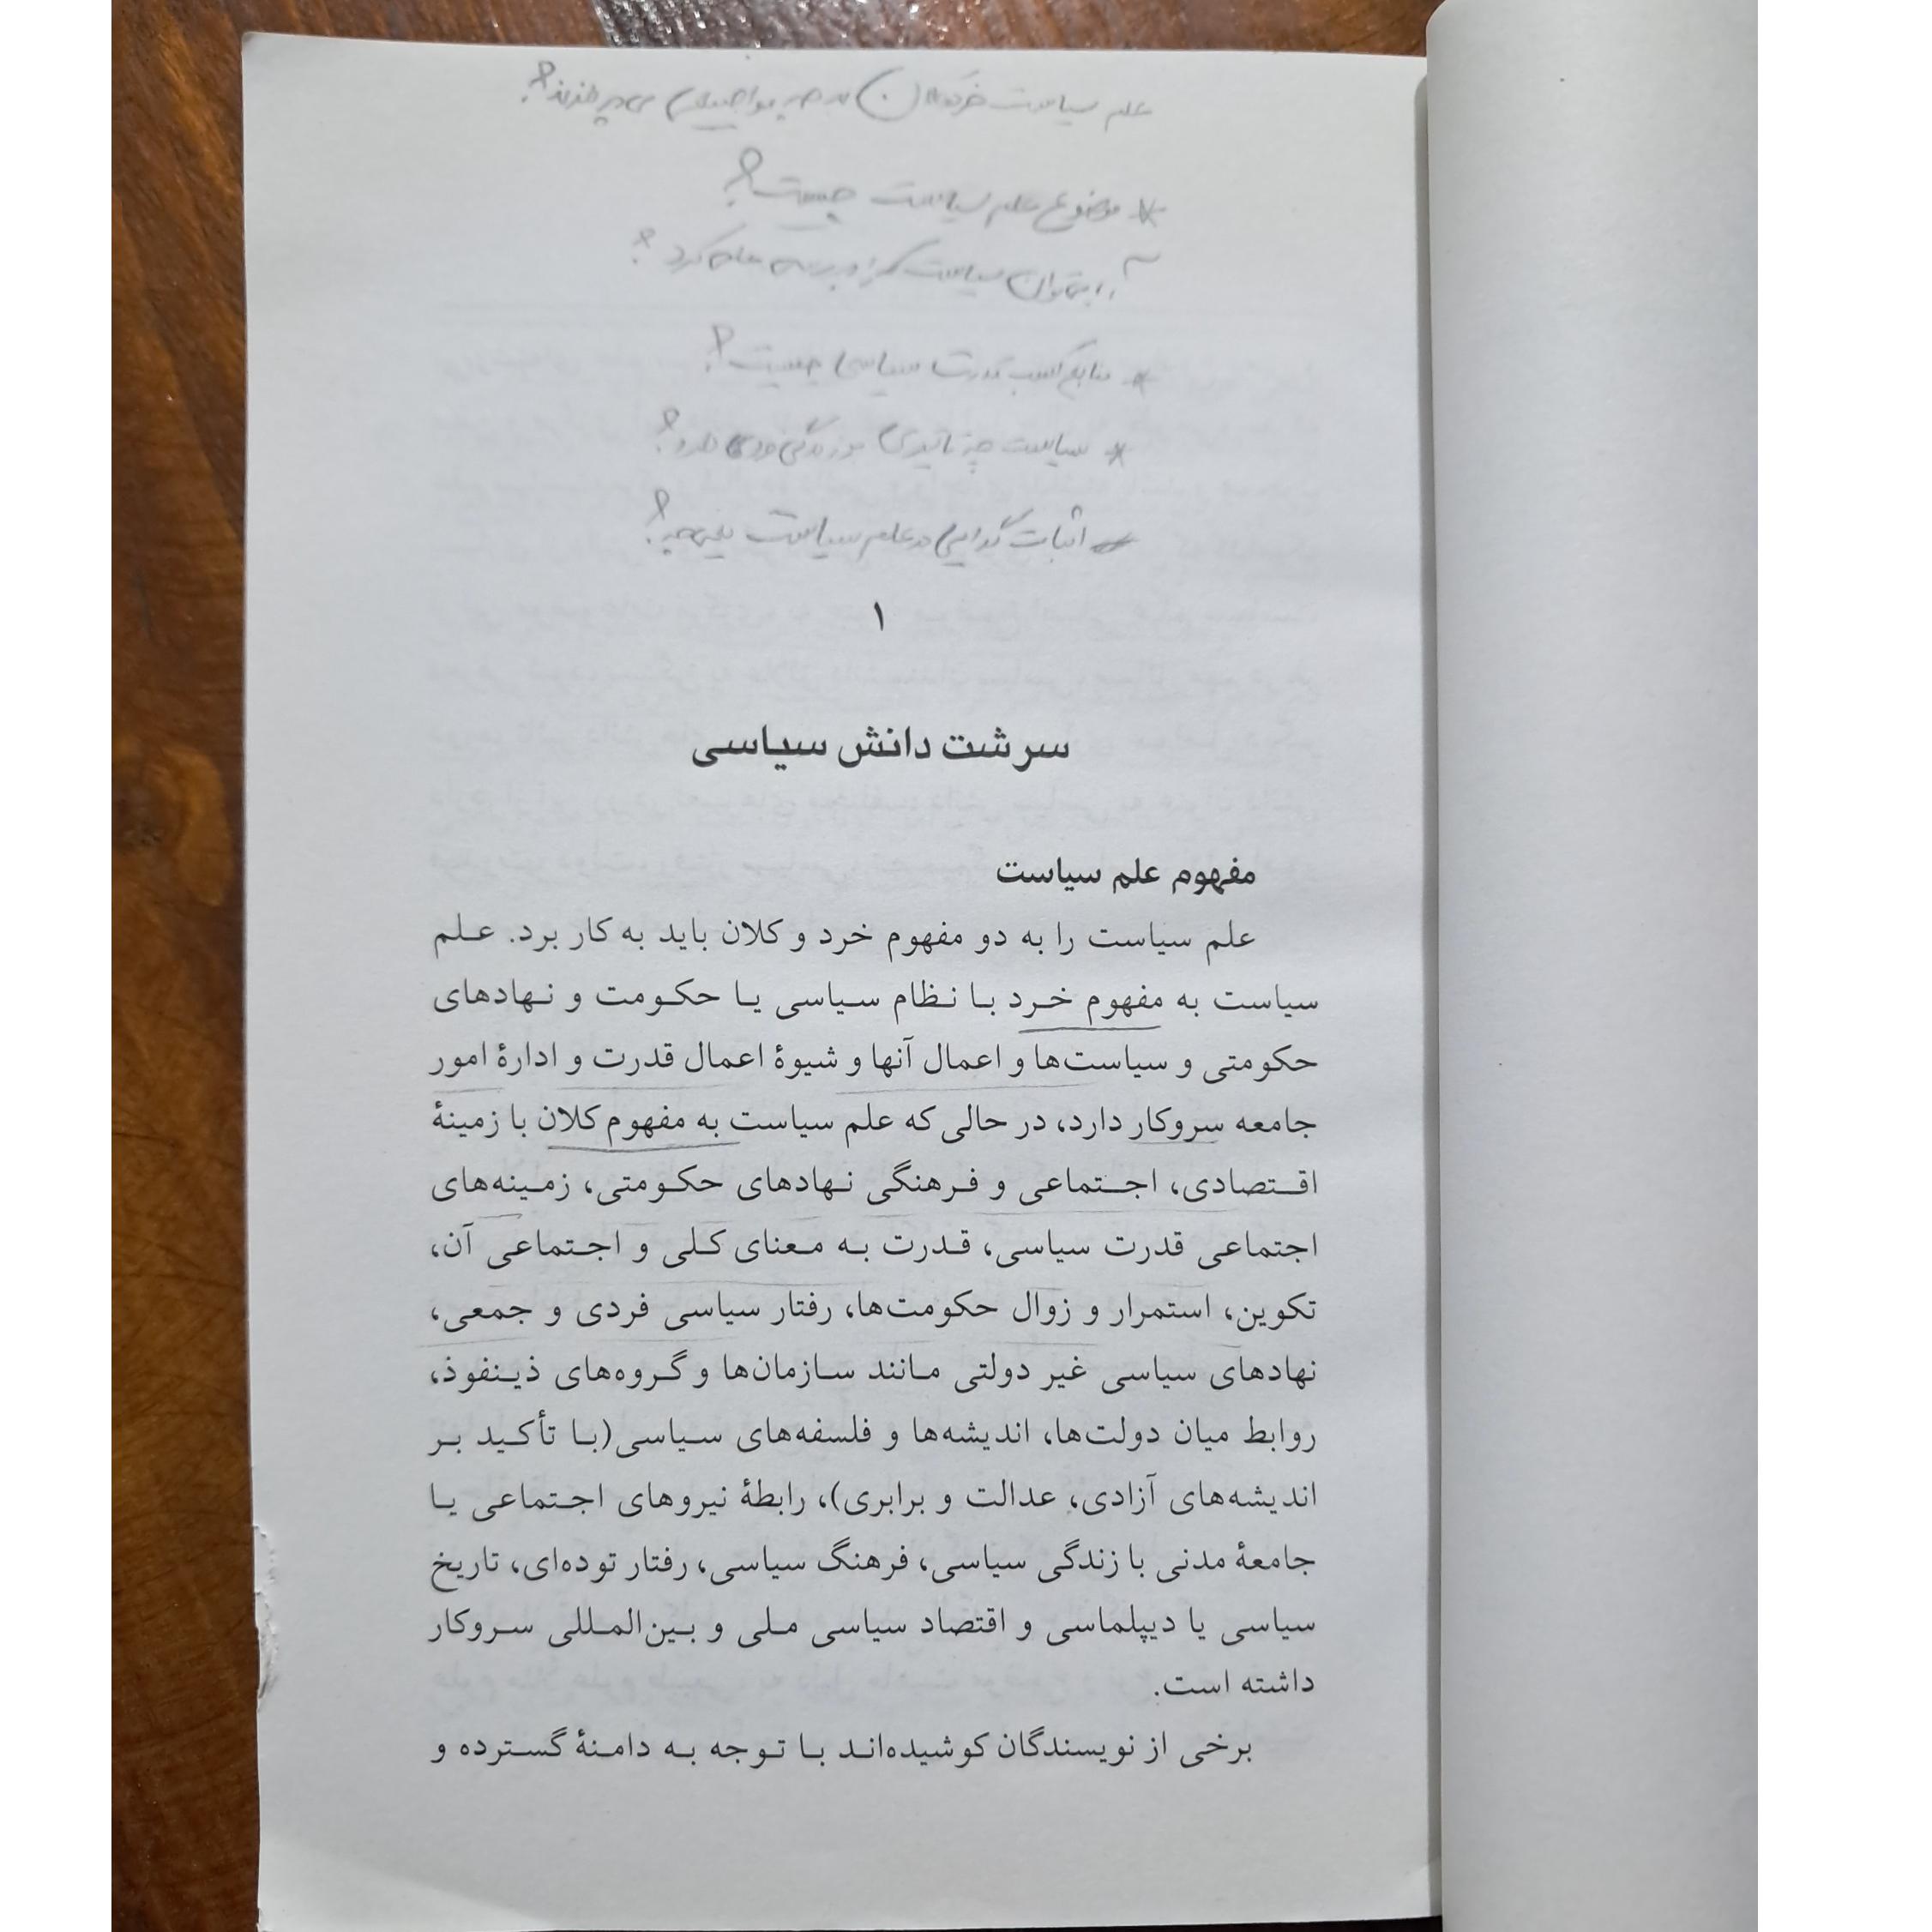 علم سیاست خرد و کلان به چه مواضیعی می‌پردازند؟
* موضوع علم سیاست چیست؟
آیا میتوان سیاست را به علم کرد؟
* منابع کسب قدرت سیاسی چیست؟
* سیاست چه تاثیری در زندگی فردی دارد؟
* اثبات گرایی در علم سیاست یعنی چه؟
۱
سرشت دانش سیاسی
مفهوم علم سیاست
علم سیاست را به دو مفهوم خرد و کلان باید به کار برد. علم
سیاست به مفهوم خرد با نظام سیاسی یا حکومت و نهادهای
حکومتی و سیاست‌ها و اعمال آنها و شیوهٔ اعمال قدرت و ادارهٔ امور
جامعه سروکار دارد، در حالی که علم سیاست به مفهوم کلان با زمینهٔ
اقتصادی، اجتماعی و فرهنگی نهادهای حکومتی، زمینه‌های
اجتماعی قدرت سیاسی، قدرت به معنای کلی و اجتماعی آن،
تکوین، استمرار و زوال حکومت‌ها، رفتار سیاسی فردی و جمعی،
نهادهای سیاسی غیر دولتی مانند سازمان‌ها و گروه‌های ذینفوذ،
روابط میان دولت‌ها، اندیشه‌ها و فلسفه‌های سیاسی(با تأکید بر
اندیشه‌های آزادی، عدالت و برابری)، رابطهٔ نیروهای اجتماعی یا
جامعهٔ مدنی با زندگی سیاسی، فرهنگ سیاسی، رفتار توده‌ای، تاریخ
سیاسی یا دیپلماسی و اقتصاد سیاسی ملی و بین‌المللی سروکار
داشته است.
برخی از نویسندگان کوشیده‌اند با توجه به دامنهٔ گسترده و